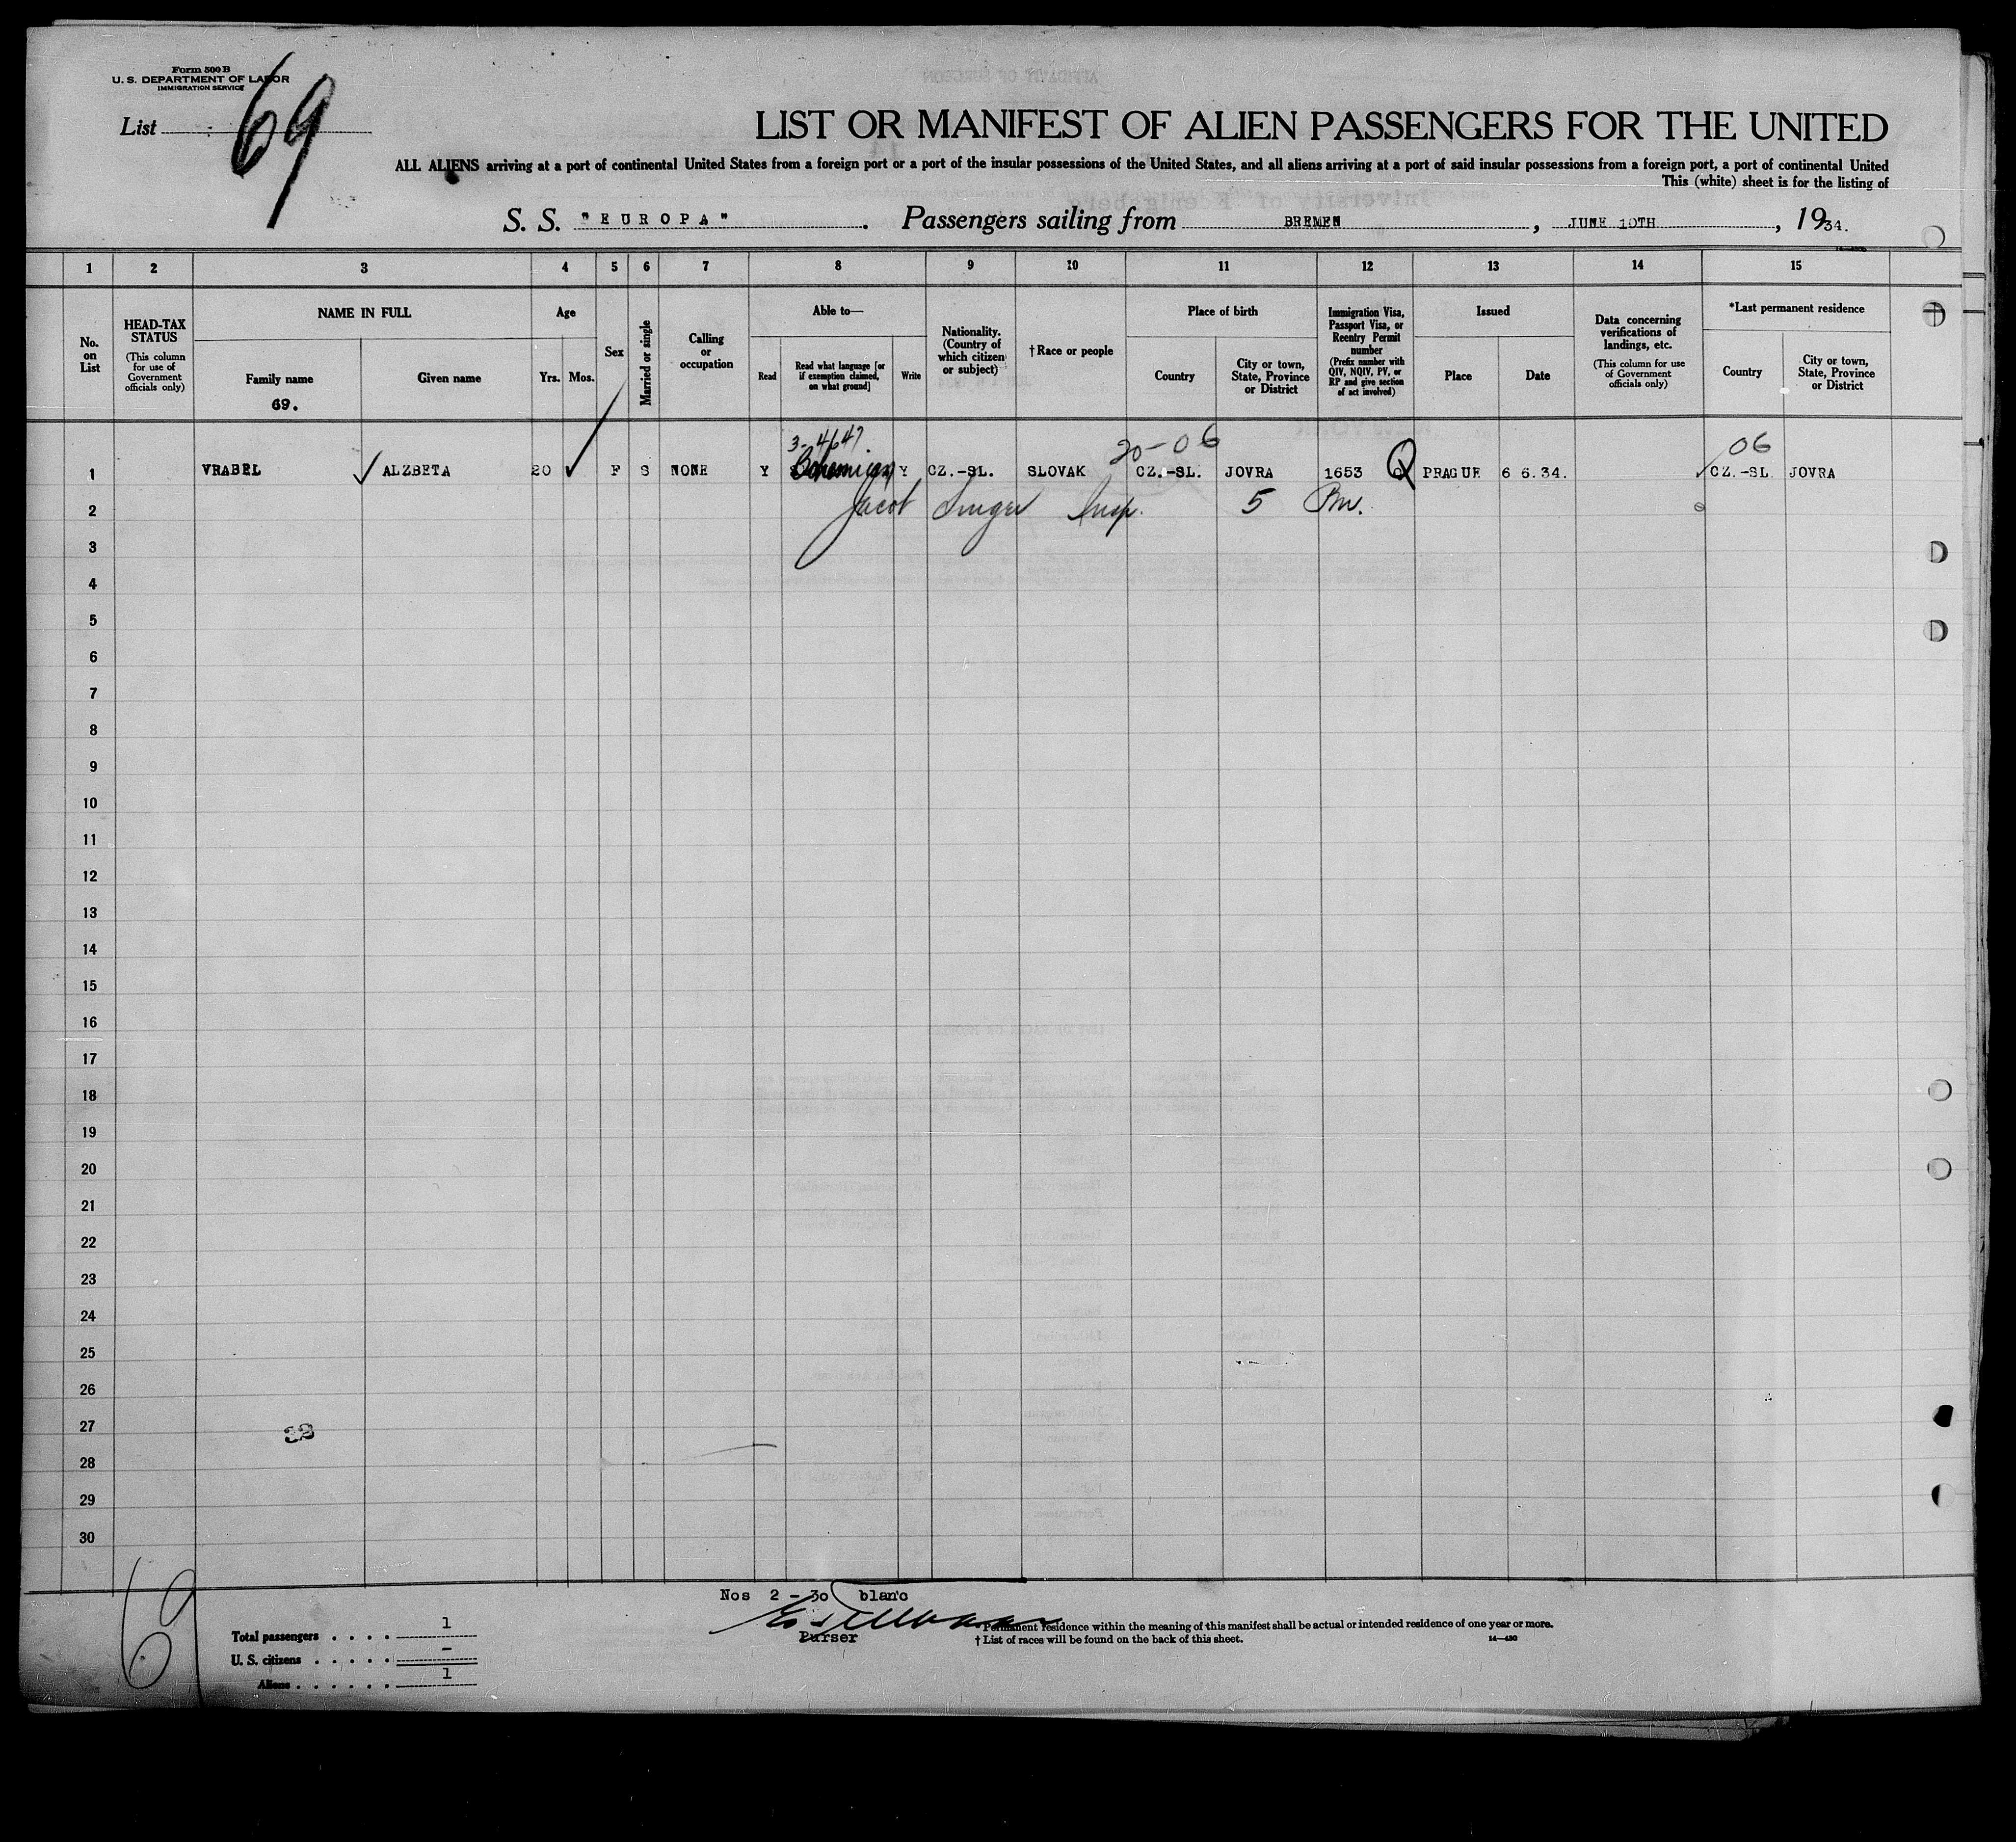 Form 500 B
U. S. DEPARTMENT OF LABOR
IMMIGRATION SERVICE
List 69
LIST OR MANIFEST OF ALIEN PASSENGERS FOR THE UNITED
ALL ALIENS arriving at a port of continental United States from a foreign port or a port of the insular possessions of the United States, and all aliens arriving at a port of said insular possessions from a foreign port, a port of continental United
This (white) sheet is for the listing of
S. S. "EUROPA". Passengers sailing from BREMEN, JUNE 10TH, 1934.
1 2 3 4 5 6 7 8 9 10 11 12 13 14 15
No. on List
HEAD-TAX STATUS (This column for use of Government officials only)
NAME IN FULL
Family name
69.
Given name
Age
Yrs. Mos.
Sex
Married or single
Calling or occupation
Able to—
Read
Read what language [or if exemption claimed, on what ground]
Write
Nationality. (Country of which citizen or subject)
†Race or people
Place of birth
Country
City or town, State, Province or District
Immigration Visa, Passport Visa, or Reentry Permit number (Prefix number with QIV, NQIV, PV, or RP and give section of act involved)
Issued
Place
Date
Data concerning verifications of landings, etc. (This column for use of Government officials only)
*Last permanent residence
Country
City or town, State, Province or District
3-4647 20-06 06
1 VRABEL ALZBETA 20 F S NONE Y Bohemian Y CZ.-SL. SLOVAK CZ.-SL. JOVRA 1653 Q PRAGUE 6 6.34. CZ.-SL. JOVRA
2 Jacob Singer Insp. 5 Pm.
3
4
5
6
7
8
9
10
11
12
13
14
15
16
17
18
19
20
21
22
23
24
25
26
27
28
29
30
Nos 2 - 30 blanc
Purser
69
Total passengers . . . . 1
U. S. citizens . . . . . -
Aliens . . . . . . 1
*Permanent residence within the meaning of this manifest shall be actual or intended residence of one year or more.
† List of races will be found on the back of this sheet.
14—430